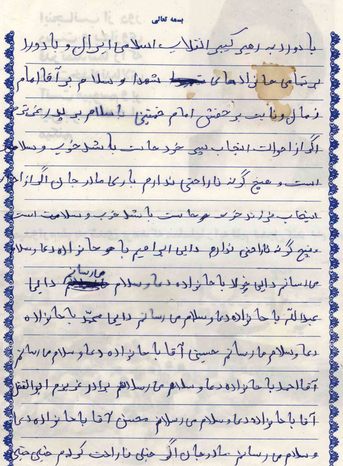 بسمه تعالی
با درود به رهبر کبیر انقلاب اسلامی ایران و با درود
بر تمامی خانواده‌های شهدا و سلام بر آقا امام
زمان و نایب بر حقش امام خمینی با سلام بر پدر عزیزم
اگر از احوالات اینجانب پسر خود خواسته باشید خوب و سلامت
است و هیچ گونه ناراحتی ندارم باری مادر جان اگر از احوال
اینجانب فرزند خود خواسته باشید خوب و سلامت است
هیچ گونه ناراحتی ندارم دایی ابراهیم با خانواده دعا و سلام
می رسانم دایی با خانواده دعا و سلام می رسانم دایی
عبدالله با خانواده دعا و سلام می رسانم دایی محمد با خانواده
دعا و سلام می رسانم حسین آقا با خانواده دعا و سلام می رسانم
آقا احمد با خانواده دعا و سلام می رسانم برادر عزیزم ابوالفضل
آقا با خانواده دعا و سلام می رسانم محسن آقا با خانواده دعا
و سلام می رسانم مادر جان اگر خیلی ناراحت کردم خیلی خیلی